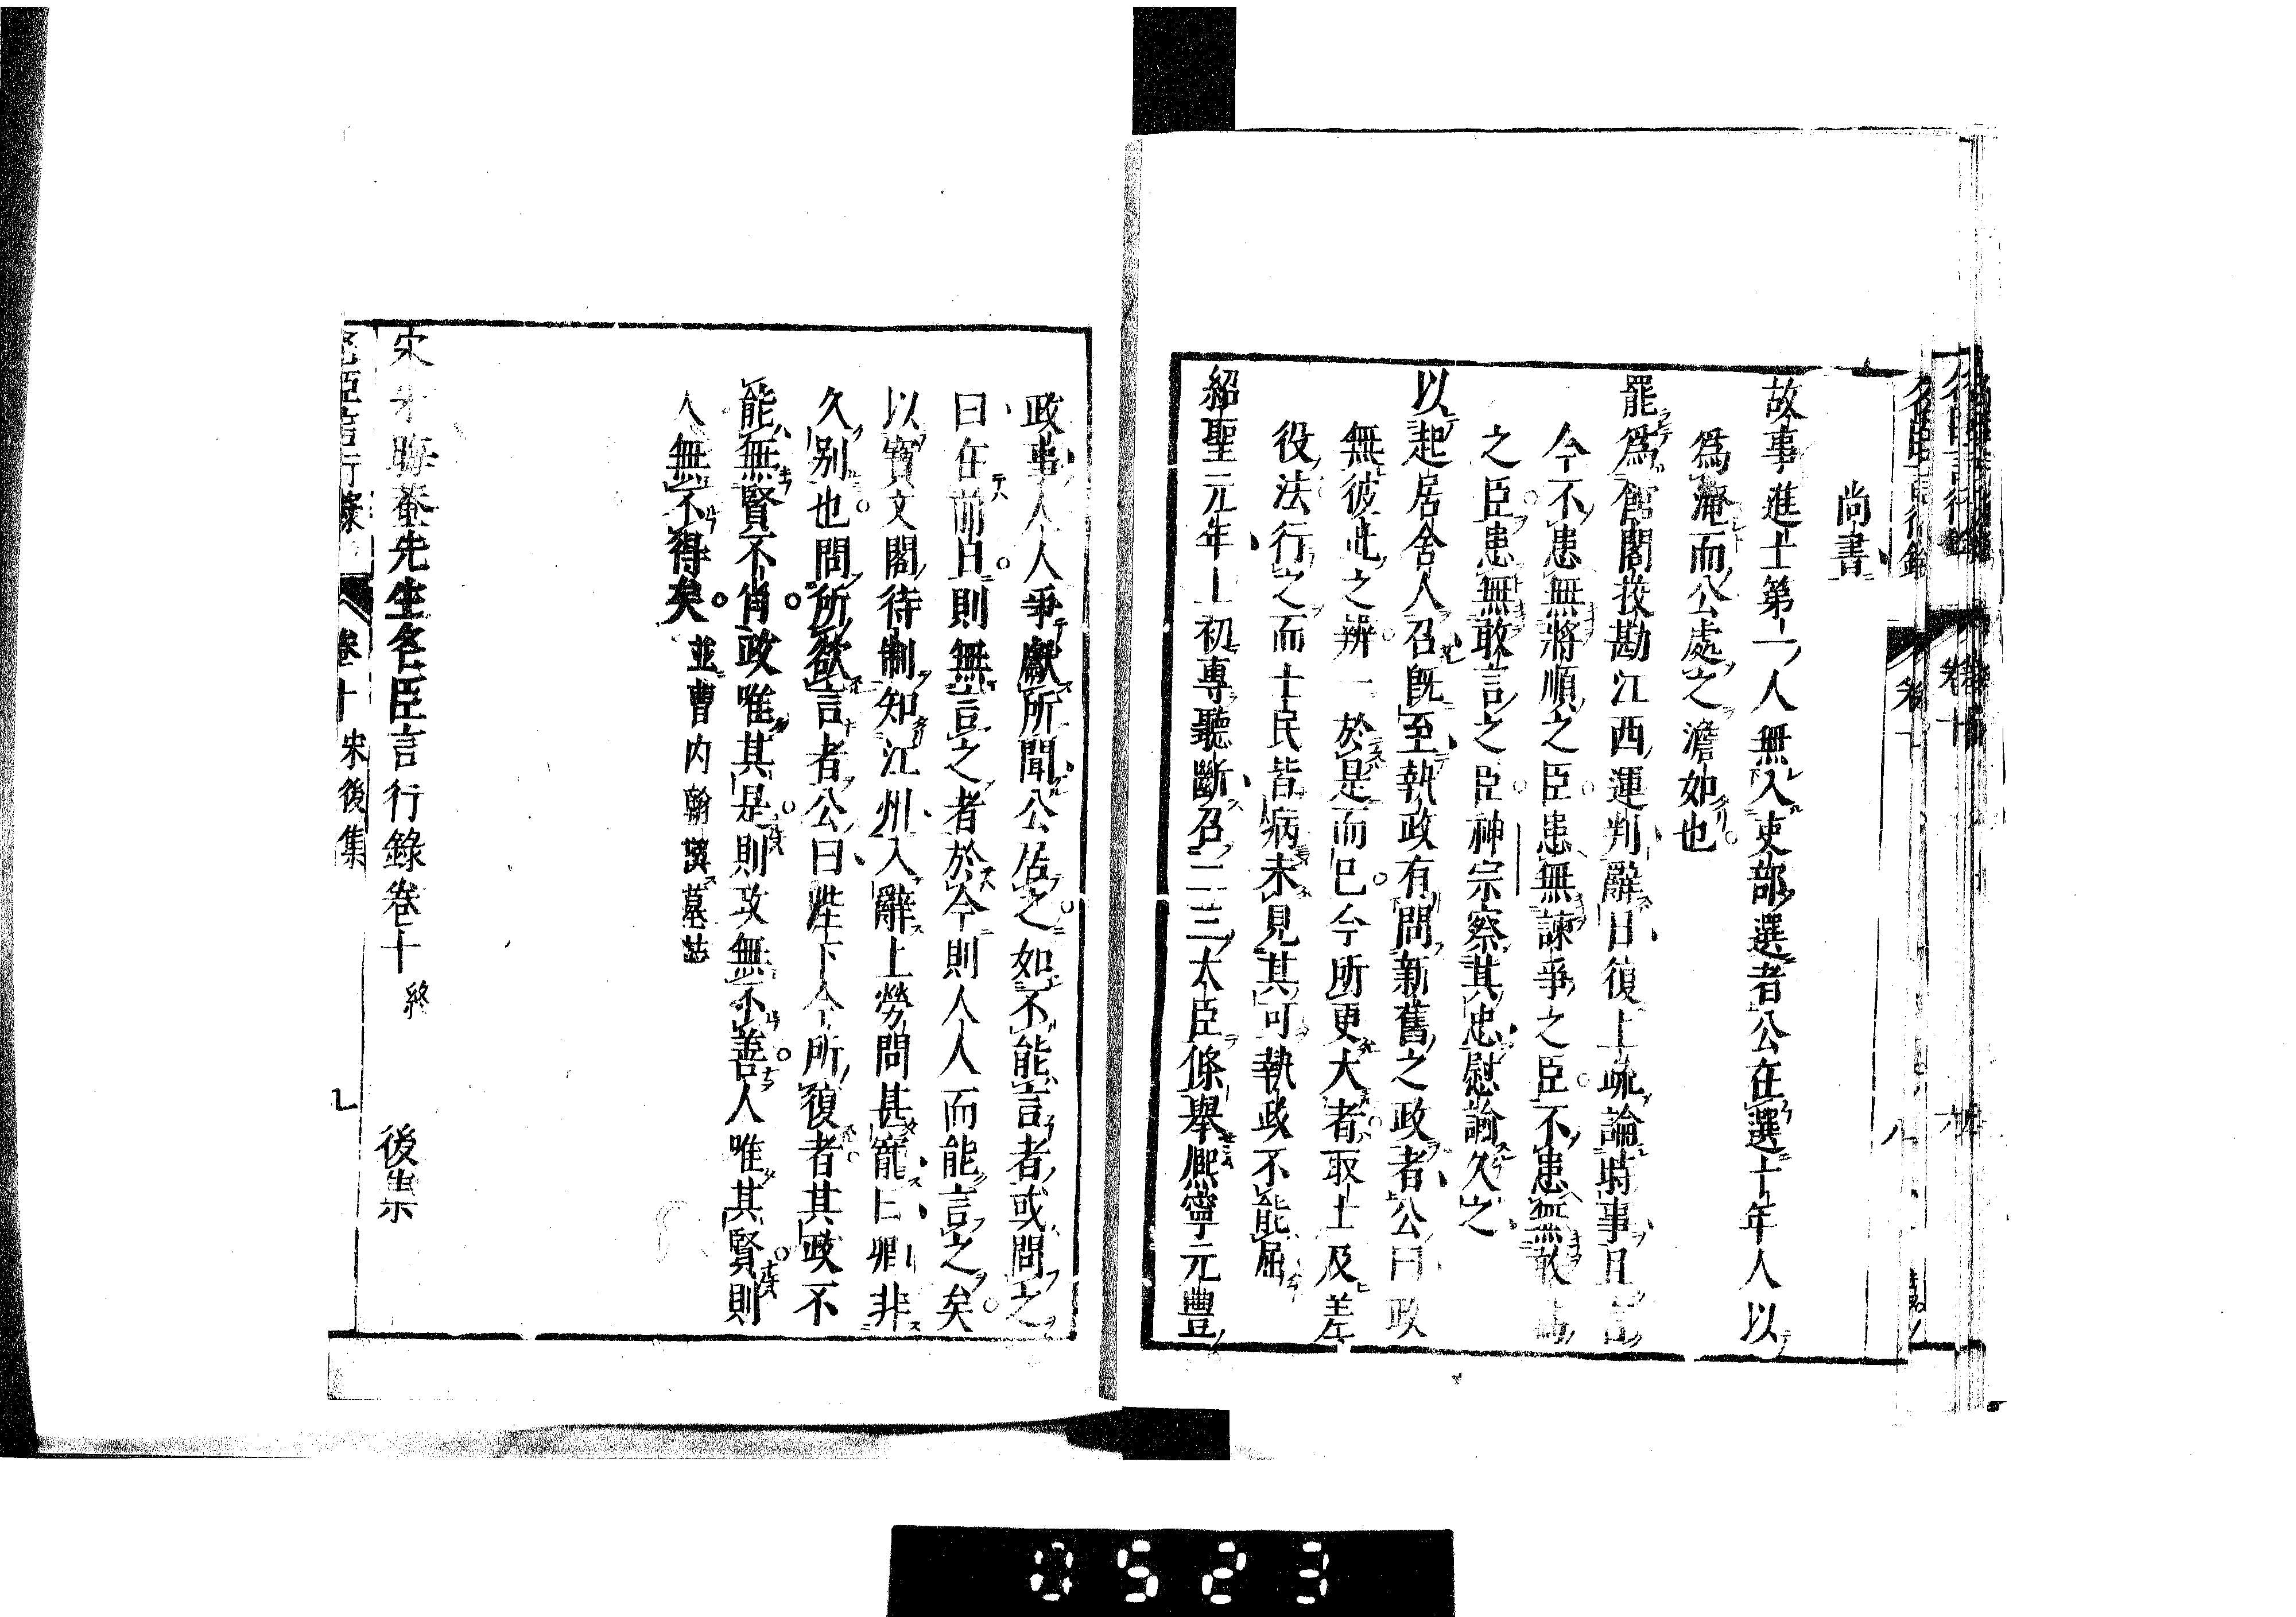 尚書
故事進士第一人無入吏部選者公在選十年人以
為淹而公處之澹如也
罷為館閣挍勘江西運判辭日復上疏論時事且言
今不患無將順之臣患無諫爭之臣不患無敢
之臣患無敢言之臣神宗察其忠慰諭久之
以起居舍人召既至執政有問新舊之政者公曰政
無彼此之辨一於是而已今所更大者取士及差
役法行之而士民皆病未見其可執政不能屈
紹聖元年上初專聽斷召二三大臣條舉熈寧元豐
政事人人爭獻所聞公佁之如不能言者或問之
曰在前日則無言之者於今則人人而能言之矣
以寶文閣待制知江州入辭上勞問甚寵曰卿非
久别也問所欲言者公曰陛下今所復者其政不
能無賢不肖政唯其是則政無不善人唯其賢則
人無不得矣 並曹内翰譔墓誌
宋朱晦菴先生名臣言行錄卷十 終 後集
名臣言行錄 卷十 宋後集
0523